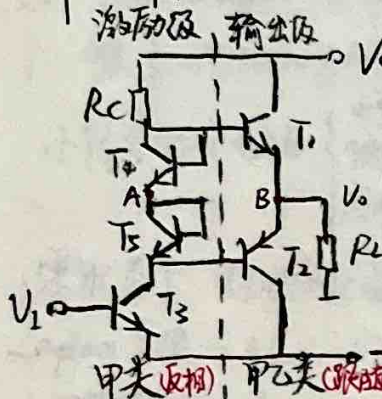 激励级 输出级
V
Rc
T₁
T₄
A B V₀
T₅
T₂ RL
V₁ T₃
甲类(反相) 甲乙类(跟随